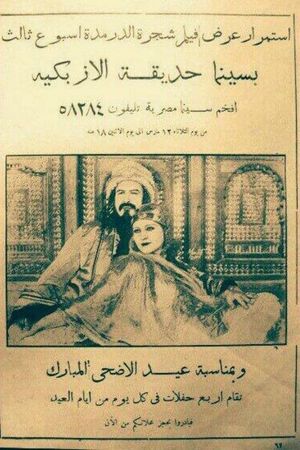 استمرار عرض فيلم شجرة الدر لمدة اسبوع ثالث
بسينما حديقة الازبكيه
افخم سينما مصرية تليفون ٥٨٢٨٤
من يوم الثلاثاء ١٢ مارس الى يوم الاثنين ١٨ منه
وبمناسبة عيد الاضحى المبارك
تقام اربع حفلات فى كل يوم من ايام العيد
فبادروا بحجز محلاتكم من الآن